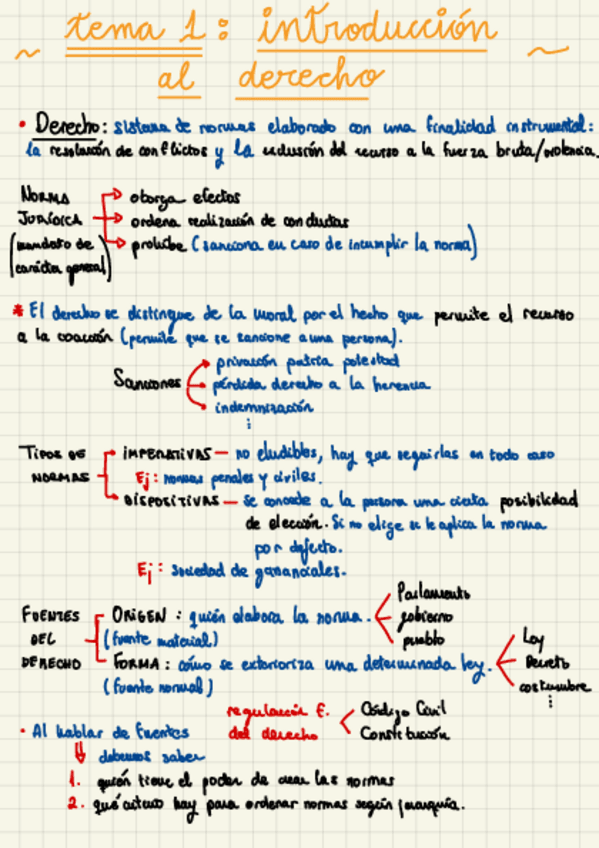 tema 1: introducción
al derecho
• Derecho: sistema de normas elaborado con una finalidad instrumental:
la resolución de conflictos y la reclusión del recurso a la fuerza bruta/violencia.
NORMA
JURÍDICA
(mandato de
carácter general)
otorga efectos
ordena realización de conductas
prohíbe (sanciona en caso de incumplir la norma)
* El derecho se distingue de la moral por el hecho que permite el recurso
a la coacción (permite que se sancione a una persona).
Sanciones
privación patria potestad
pérdida derecho a la herencia
indemnización
⋮
TIPOS DE
NORMAS
IMPERATIVAS — no eludibles, hay que seguirlas en todo caso
Ej: normas penales y civiles.
DISPOSITIVAS — se concede a la persona una cierta posibilidad
de elección. Si no elige se le aplica la norma
por defecto.
Ej: sociedad de gananciales.
FUENTES
DEL
DERECHO
ORIGEN: quién elabora la norma.
(fuente material)
Parlamento
gobierno
pueblo
FORMA: cómo se exterioriza una determinada ley.
(fuente normal)
Ley
Decreto
costumbre
⋮
regulación F.
del derecho
Código Civil
Constitución
• Al hablar de fuentes
debemos saber
1. quién tiene el poder de crear las normas
2. qué criterio hay para ordenar normas según jerarquía.